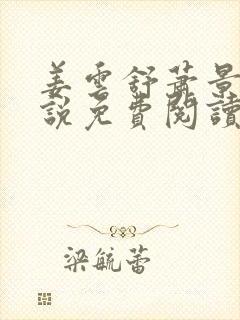 姜雲舒蕭景
說免費閱讀
梁毓蕾